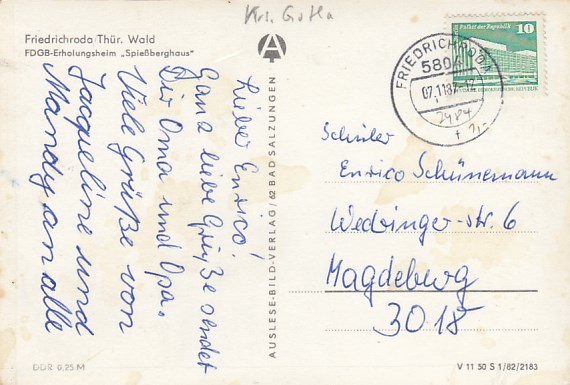 Krs. Gotha
Friedrichroda/Thür. Wald
FDGB-Erholungsheim „Spießberghaus"
Lieber Enrico!
Ganz liebe Grüße sendet
Dir Oma und Opa.
Viele Grüße von
Jacqueline und
Mandy an alle
AUSLESE-BILD-VERLAG/62 BAD SALZUNGEN
Palast der Republik
10
FRIEDRICHRODA
5804
Schüler
Enrico Schünemann
Wedringer-str. 6
Magdeburg
3018
DDR 0,25 M
V 11 50 S 1/82/2183